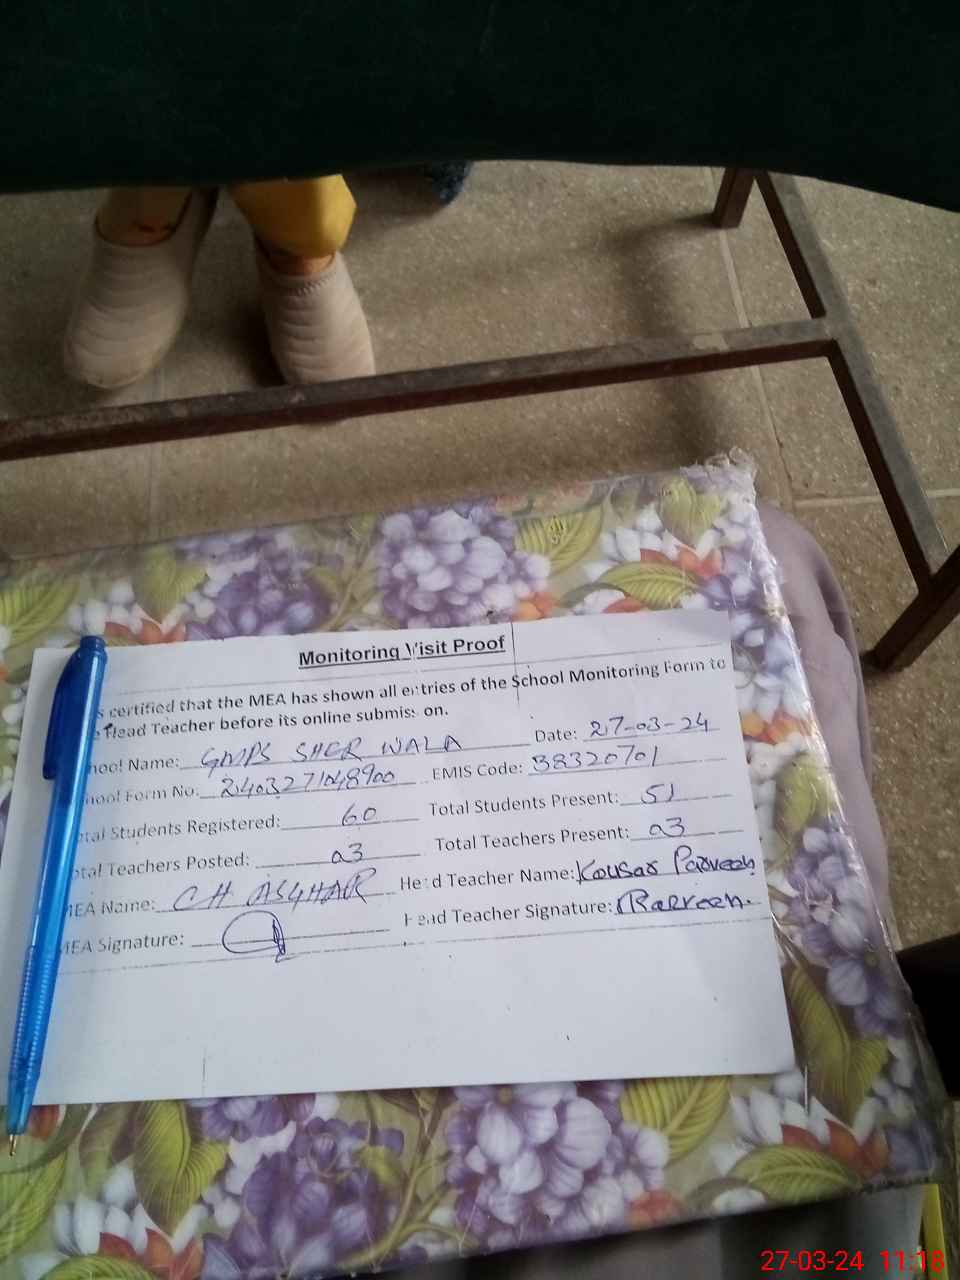 Monitoring Visit Proof
s certified that the MEA has shown all entries of the School Monitoring Form to
e Head Teacher before its online submission.
hool Name: GMPS SHER WALA Date: 27-03-24
hool Form No: 2403271048900 EMIS Code: 38320701
otal Students Registered: 60 Total Students Present: 51
otal Teachers Posted: 03 Total Teachers Present: 03
MEA Name: CH ASGHAR Head Teacher Name: Kousar Parveen
MEA Signature: Head Teacher Signature: Parveen.
27-03-24 11:18